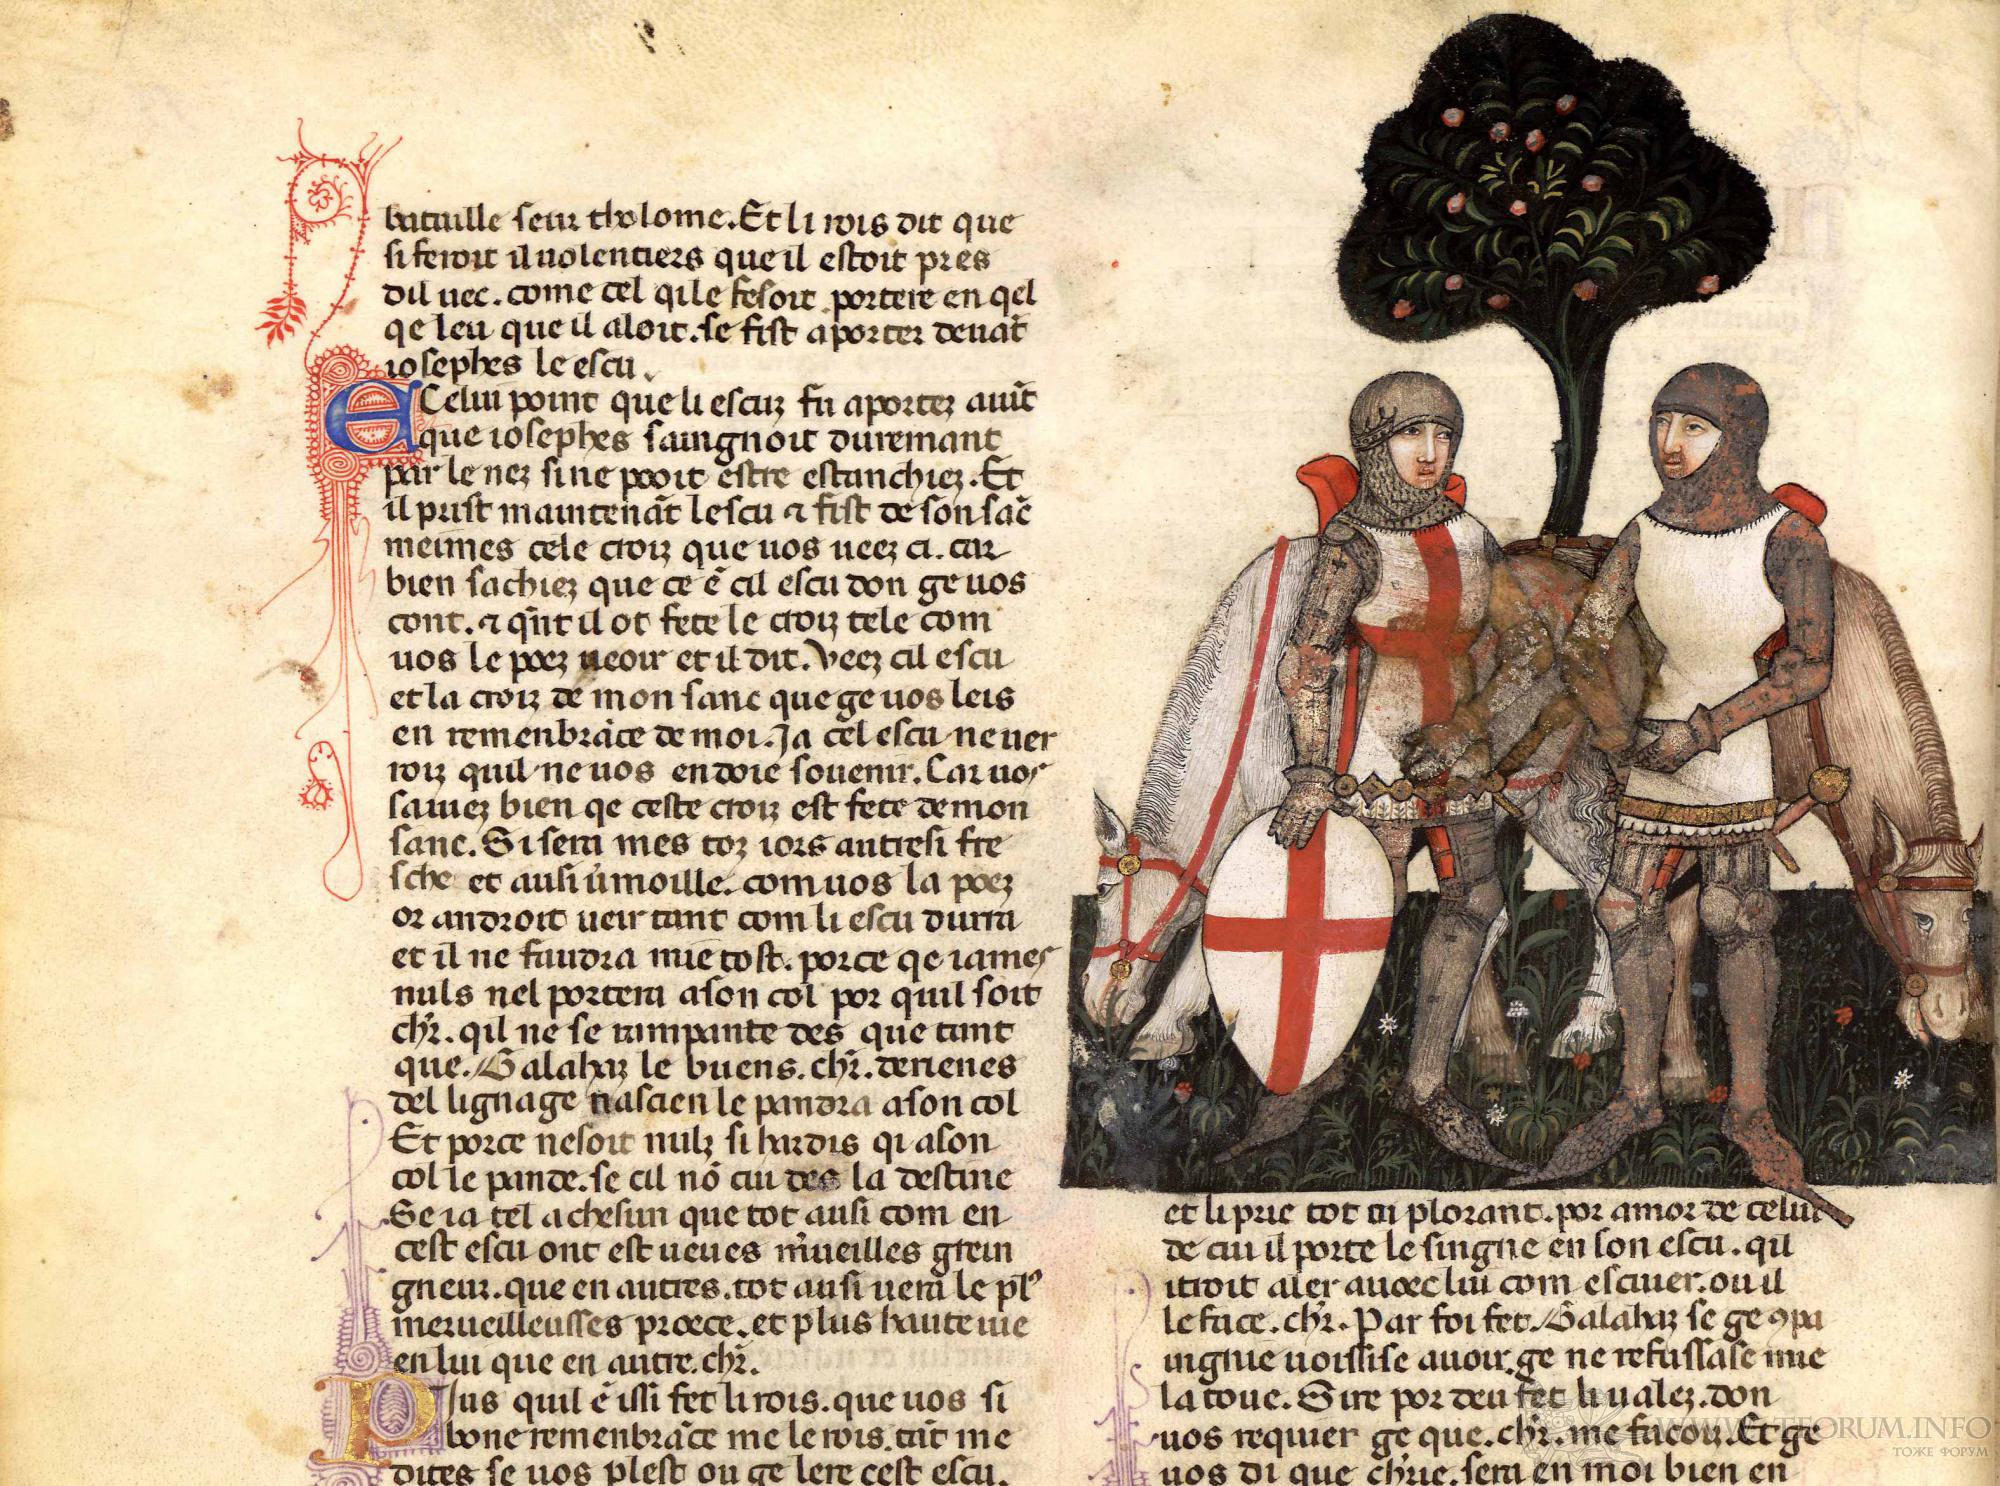 bataille seur tholome. Et li rois dit que
si feroit il uolentiers que il estoit pres
dil uec. come cel qi le fesoit portere en qel
qe leu que il aloit. se fist aporter deuāt
iosephes le escu.
E Celui point que li escuz fu aportez auīt
que iosephes saingnoit duremant
par le nez si ne pooit estre estanchiez. Et
il prist maintenāt lescu ⁊ fist de son sāc
meimes cele croiz que uos ueez ci. car
bien sachiez que ce ē cil escu don ge uos
cont. ⁊ qn̄t il ot fete le croiz tele com
uos le poez ueoir et il dit. Veez cil escu
et la croiz de mon sanc que ge uos leis
en remenbrāce de moi. Ja cel escu ne uer
roiz quil ne uos en doie souenir. Car uos
sauiez bien qe ceste croiz est fete de mon
sanc. Si sera mes toz iors autresi fre
sche et ausi u̓moille. com uos la poez
or androit ueir tant com li escu durra
et il ne faudra mie tost. por ce qe iames
nuls nel portera a son col por quil soit
chr̄. qil ne se rampante des que tant
que. Galahaz le buens. chr̄. derienes
del lignage nascien le pandra a son col
Et por ce ne soit nulz si hardis qi a son
col le pande. se cil nō cui des la destine
Se ia tel achesun que tot ausi com en
cest escu ont est ueues m̓ueilles grein
gneur. que en autres. tot ausi uera le pl᾿
merueilleusses proece. et plus haute uie
en lui que en autre. chr̄.
Plus quil ē issi fet li rois. que uos si
bone remenbrāce me le rois. tāt me
dites se uos plest ou ge lere cest escu.
et li prie tot en plorant. por amor de celui
de cui il porte le singne en son escu. qil
itroit aler auoec lui com escuier. ou il
le face. chr̄. Par foi fet. Galahaz se ge ꝯpa
ingnie uoissise auoir. ge ne refussase mie
la toue. Sire por deu fet li ualez. don
uos requier ge que. chr̄. me facoiz. Et ge
uos di que chr̓ie. sera en moi bien en
WWW.TFORUM.INFO
ТОЖЕ ФОРУМ